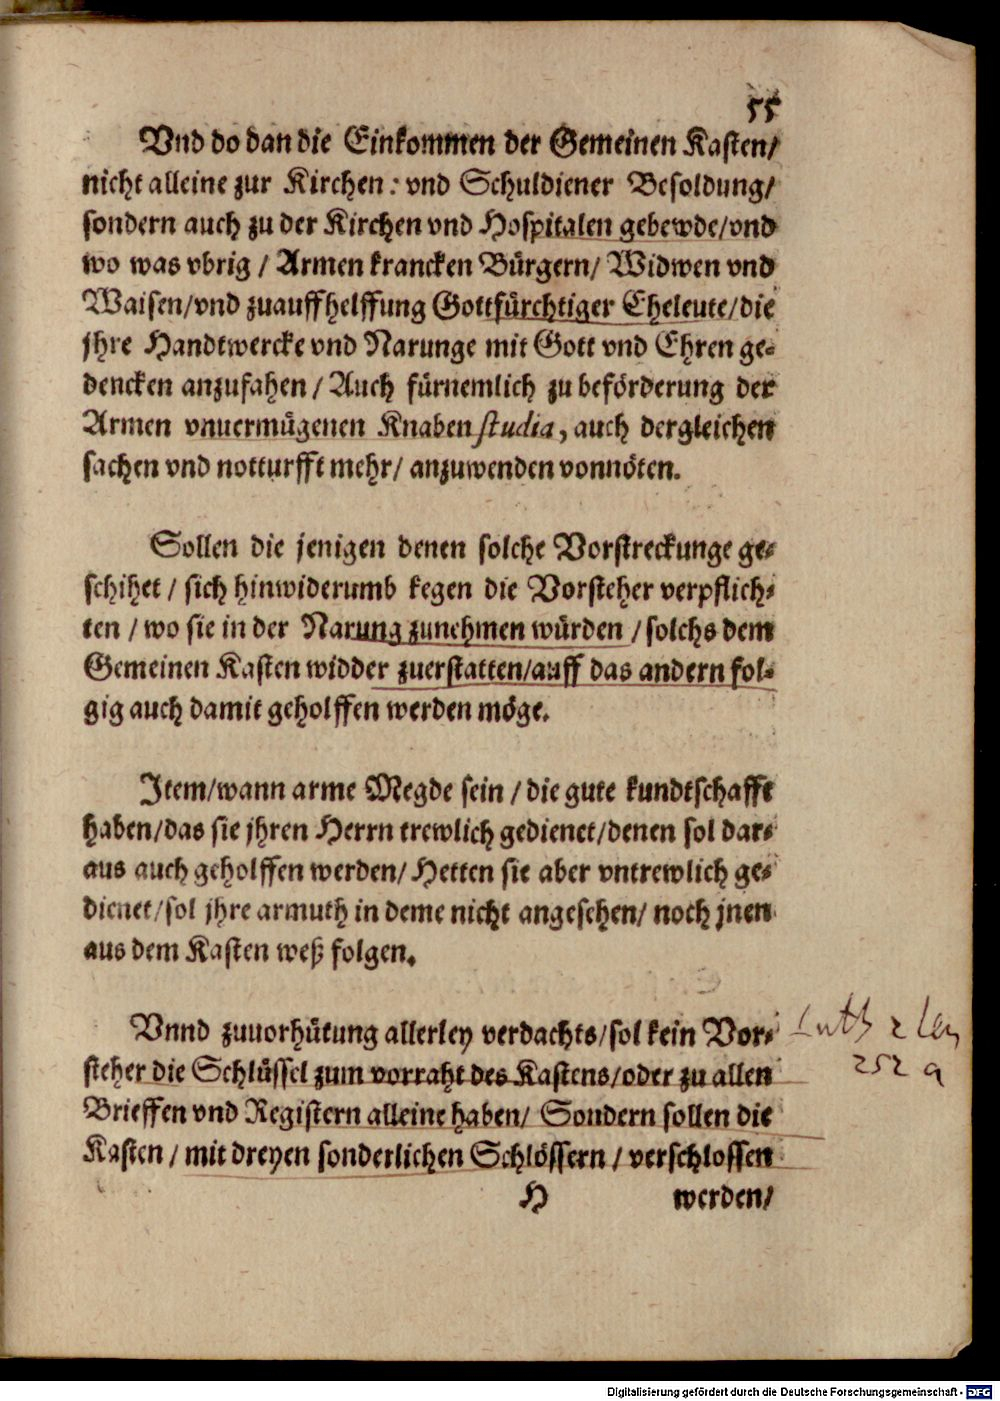 55
Vnd do dan die Einkommen der Gemeinen Kasten/
nicht alleine zur Kirchen: vnd Schuldiener Besoldung/
sondern auch zu der Kirchen vnd Hospitalen gebewde/vnd
wo was vbrig / Armen krancken Bürgern/ Widwen vnd
Waisen/vnd zuauffhelffung Gottfürchtiger Eheleute/die
jhre Handtwercke vnd Narunge mit Gott vnd Ehren ge-
dencken anzufahen / Auch fürnemlich zu beförderung der
Armen vnuermügenen Knaben studia, auch dergleichen
sachen vnd notturfft mehr/ anzuwenden vonnöten.
Sollen die jenigen denen solche Vorstreckunge ge-
schihet / sich hinwiderumb kegen die Vorsteher verpflich-
ten / wo sie in der Narung zunehmen würden / solchs dem
Gemeinen Kasten widder zuerstatten/auff das andern fol-
gig auch damit geholffen werden möge.
Item/wann arme Megde sein / die gute kundtschafft
haben/das sie jhren Herrn trewlich gedienet/denen sol dar-
aus auch geholffen werden/ Hetten sie aber vntrewlich ge-
dienet/sol jhre armuth in deme nicht angesehen/ noch jnen
aus dem Kasten weß folgen.
Vnnd zuuorhütung allerley verdachts/sol kein Vor-
steher die Schlüssel zum vorraht des Kastens/oder zu allen
Brieffen vnd Registern alleine haben/ Sondern sollen die
Kasten / mit dreyen sonderlichen Schlössern / verschlossen
H werden/
Luth 2
252 a
Digitalisierung gefördert durch die Deutsche Forschungsgemeinschaft - DFG